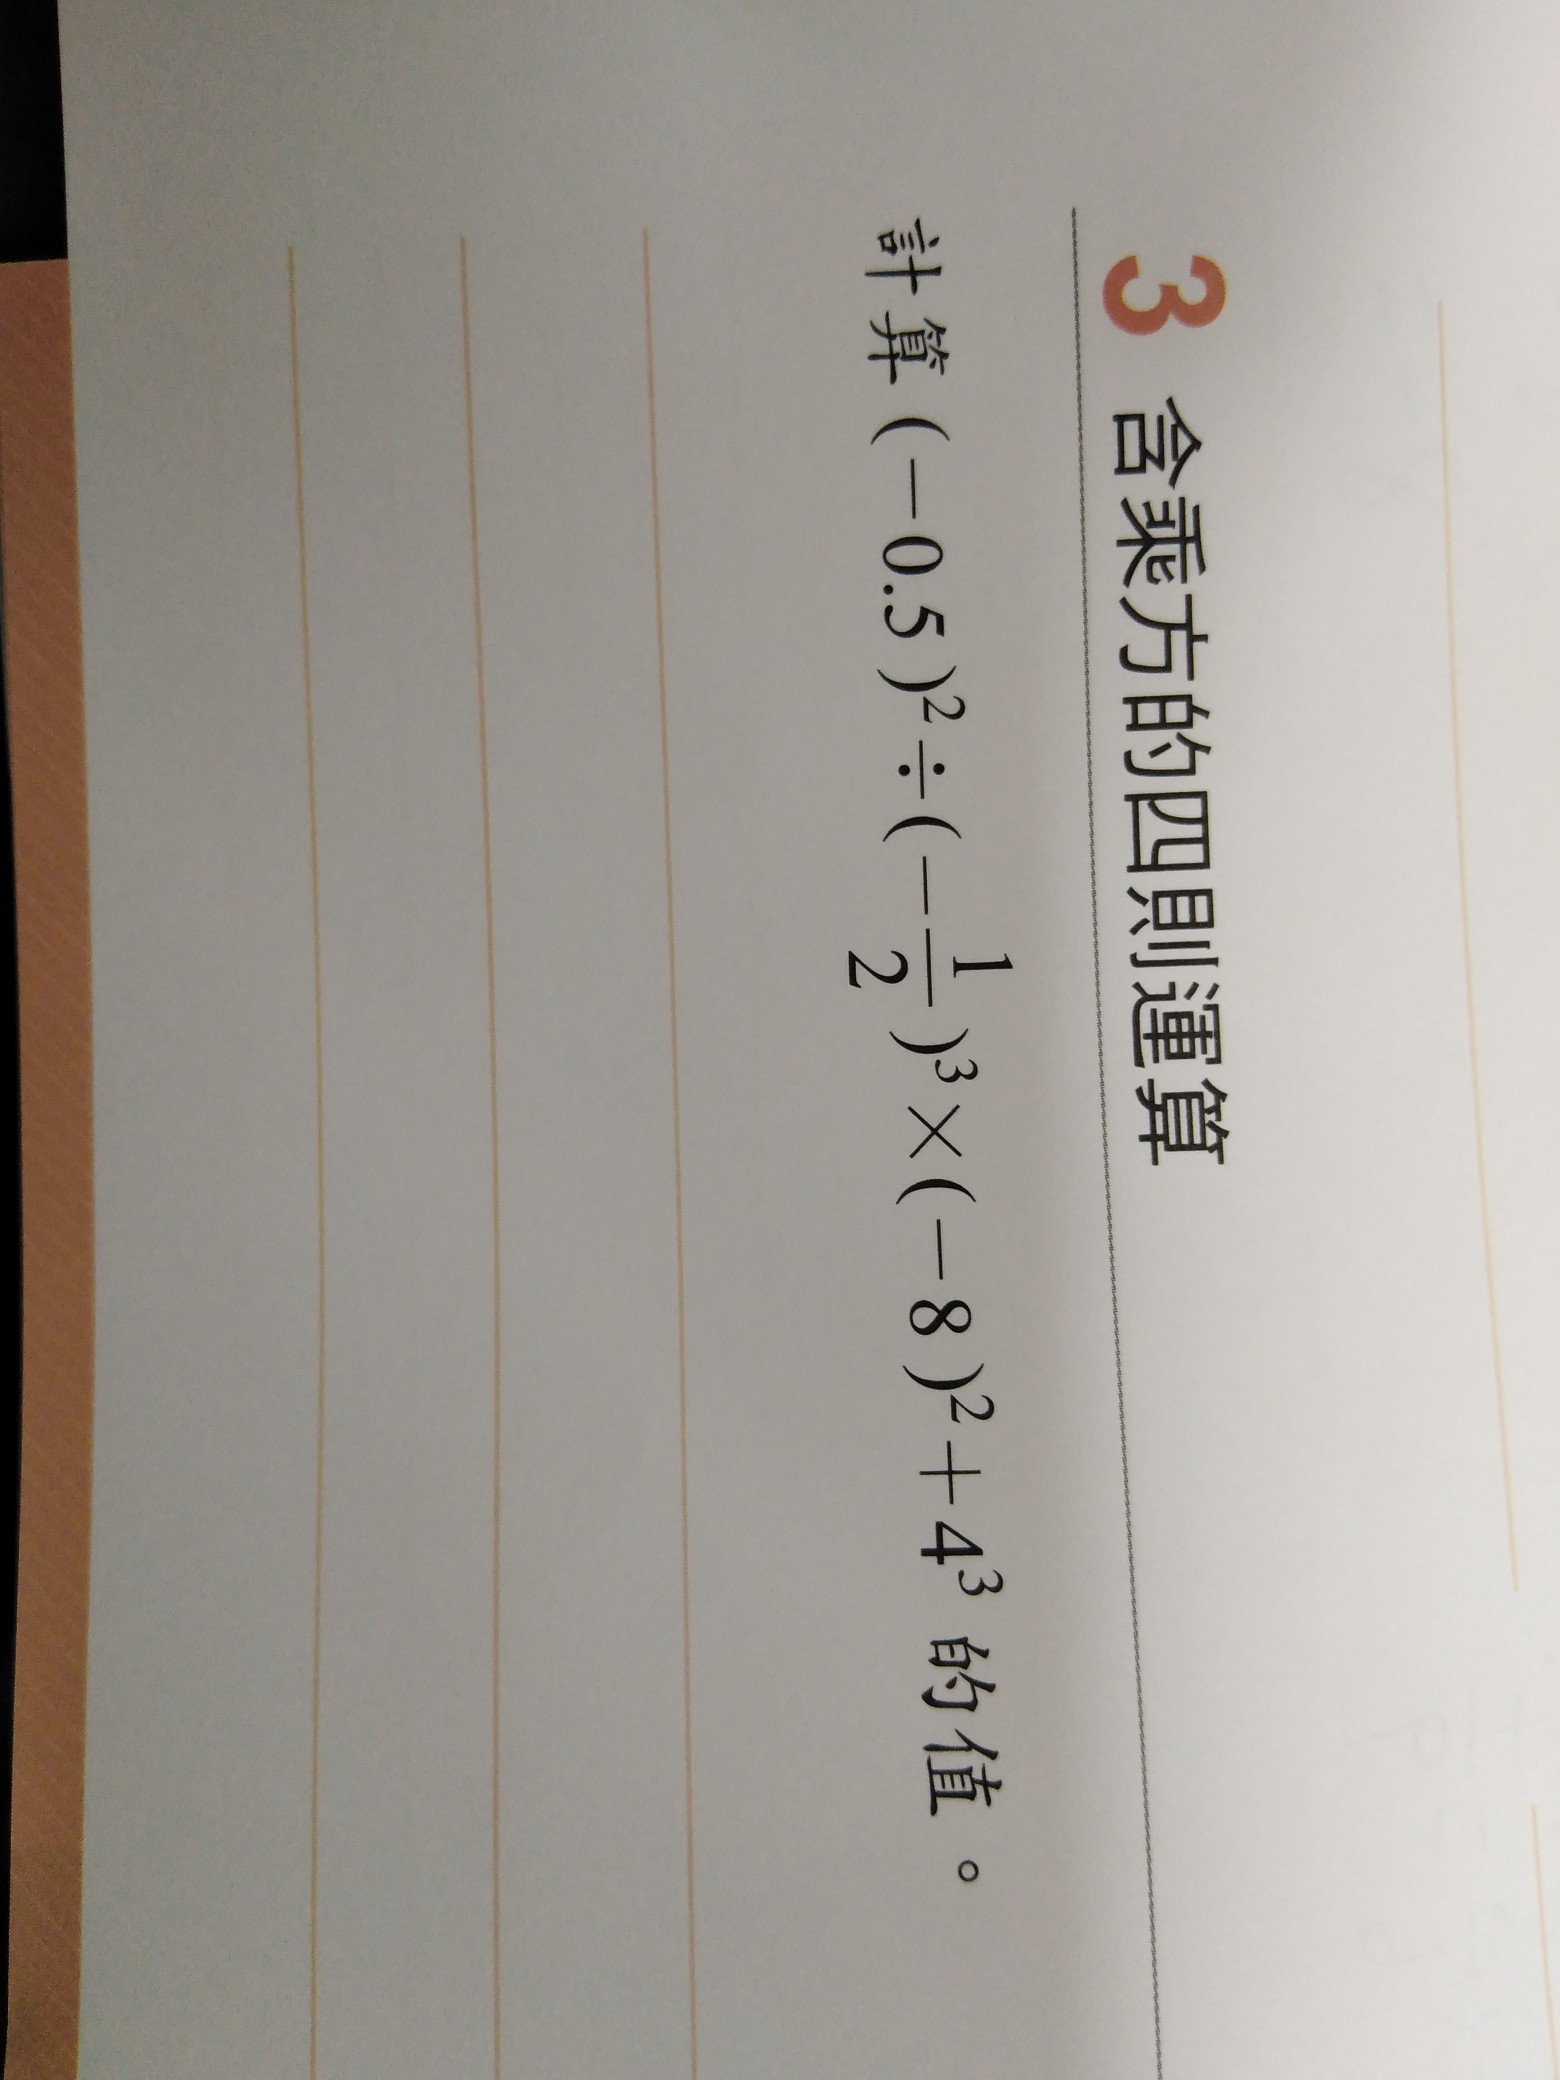 3 含乘方的四則運算
計算 (−0.5)²÷(−1/2)³×(−8)²+4³ 的值。